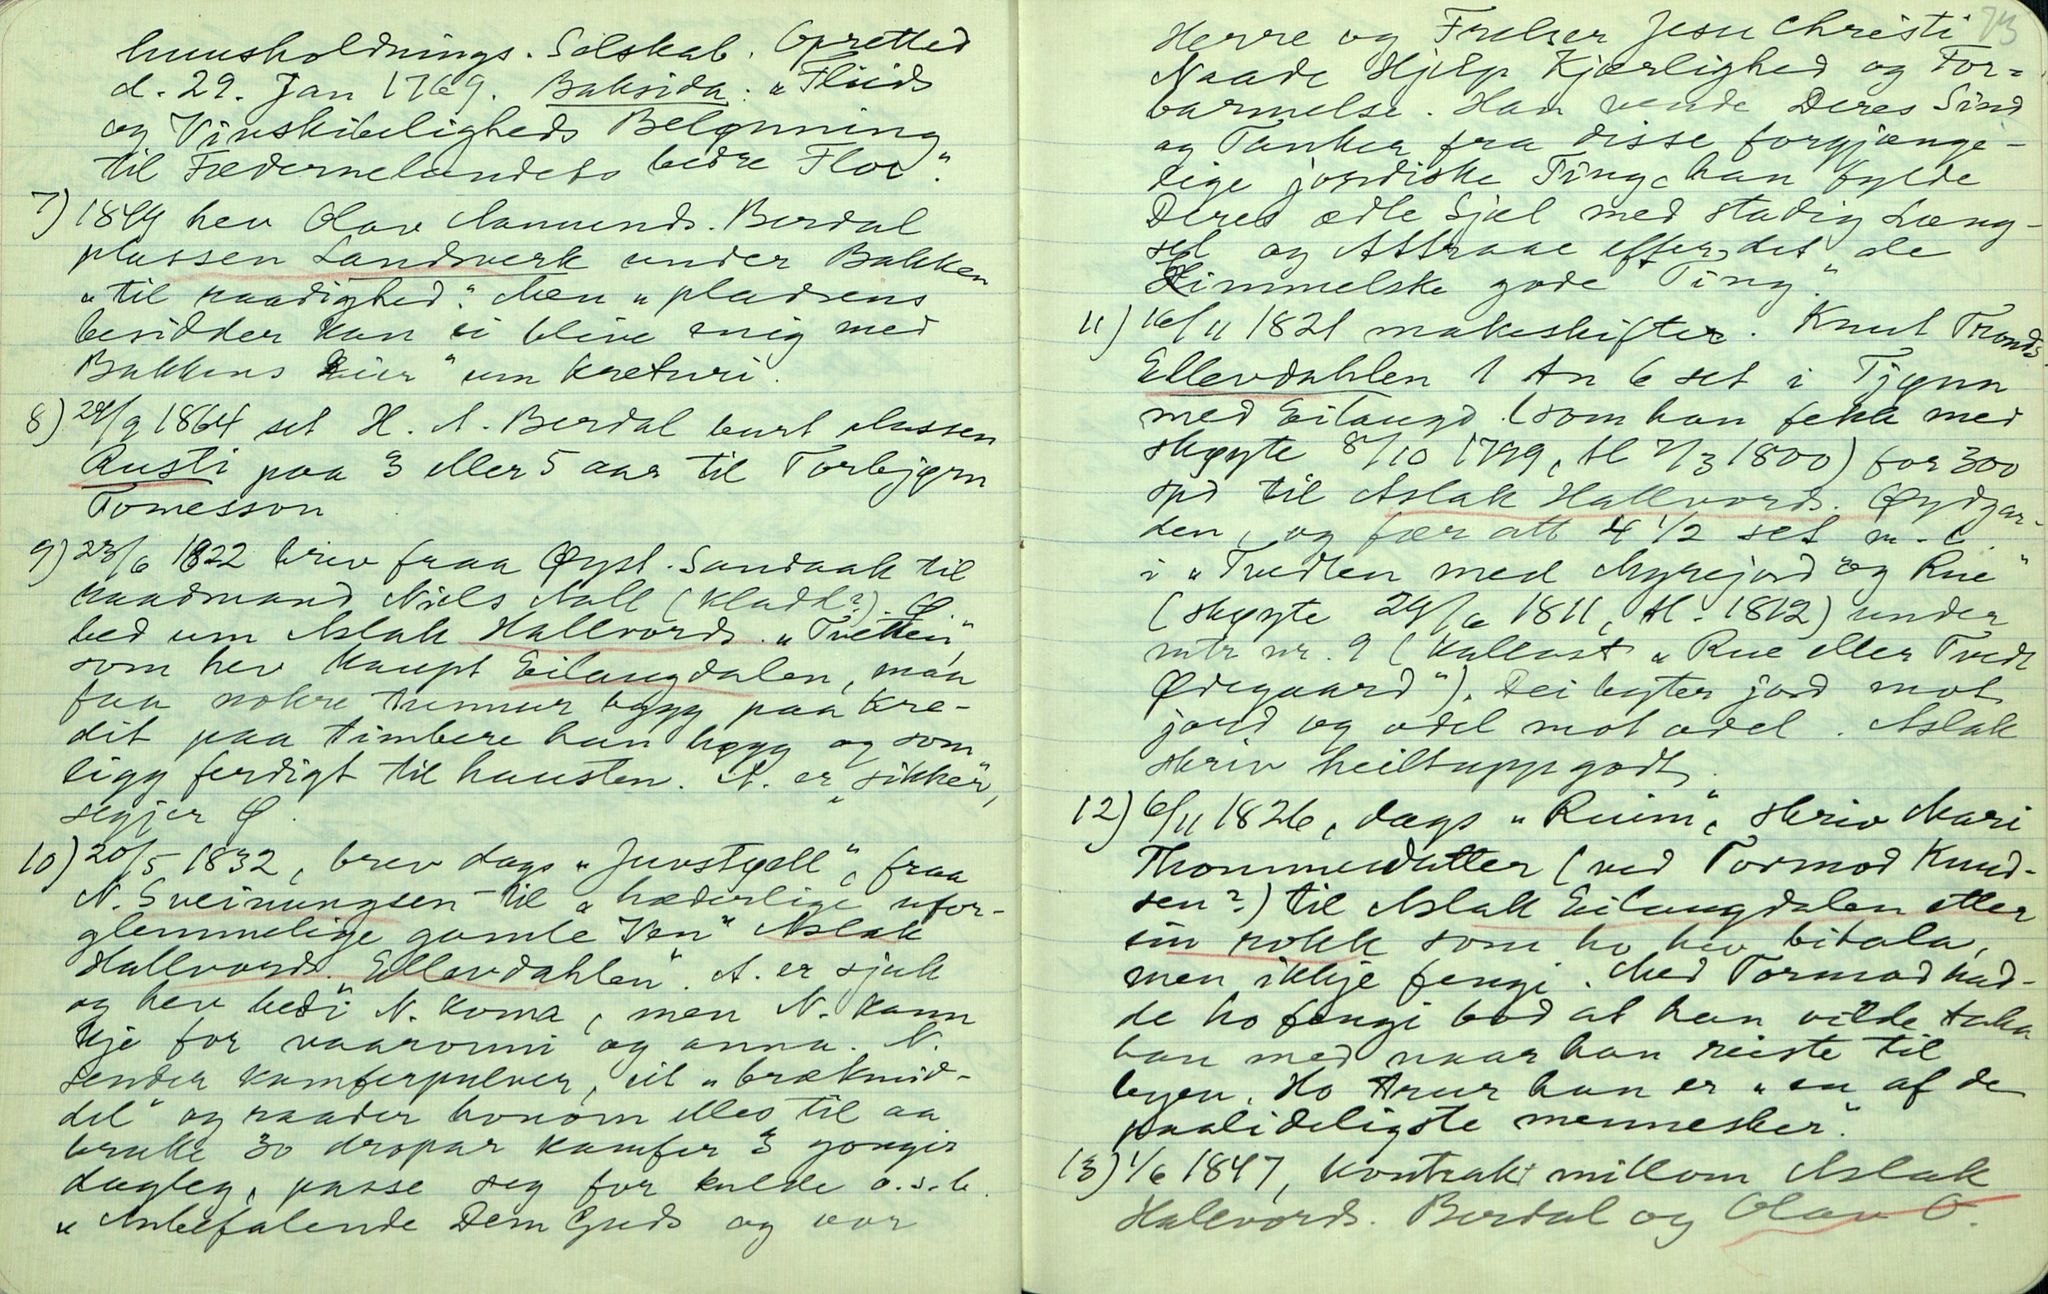 huusholdnings. Selskab. Opretted
d. 29. Jan 1769. Baksida: "Fliids
og Vinskibeligheds Belønning
til Fædernelandets bedre Flor".
7) 1844 hev Olav Aamunds. Berdal
plassen Landsverk under Bakken
"til raadighed". Men "pladsens
besidder kan ei blive enig med
Bakkens Eier" um kreturi.
8) 29/9 1864 set H. A. Berdal burt plassen
Rusti paa 3 eller 5 aar til Torbjørn
Tomesson
9) 23/6 1822 brev fraa Øyst. Sandaak til
raadmand Niels Aall (kladd?). Ø.
bed um Aslak Hallvords. "Tvetten",
som hev kaupt Eilaugdalen, maa
faa nokre tunnur bygg paa kre-
dit paa timbere han høgg og som
ligg ferdigt til hausten. A. er "sikker",
segjer Ø.
10) 20/5 1832, brev dags "Juvstøell", fraa
N. Sveinungsen til "hæderlige ufor-
glemmelige gamle Ven" Aslak
Hallvords. Ellevdahlen". A. er sjuk
og hev bedi N. koma, men N. kann
kje for vaaronni og anna. N.
sender kamferpulver, eit "brækmid-
del" og raader honom elles til aa
bruke 30 dropar kamfer 3 gongir
dagleg, passe seg for kulde o.s.b.
"Anbefalende Dem Guds og vor
73
Herre og Frelser Jesu Christi
Naade Hjelp Kjærlighed og For-
barmelse. Han vende Deres Sind
og Tanker fra disse forgjænge-
lige jordiske Ting, han fylde
Deres ædle Sjæl med stadig Læng-
sel og Attraae efter det de
Himmelske gode Ting."
11) 16/11 1821 makeskifter. Knut Tronds.
Ellevdahlen 1 An 6 set i Tjønn
med Eilaugd. (som han fekk med
skøyte 8/10 1799, tl 7/3 1800) for 300
spd til Aslak Hallvords. Øydgar-
den, og fær att 4 1/2 set m. b.
i "Tvedten med Myrejord og Rue"
(skøyte 29/6 1811, tl. 1812) under
mtr nr. 9 (kallast "Rue eller Tvedt
Ødegaard"). Dei byter jord mot
jord og odel mot odel. Aslak
skriv heiltupp godt.
12) 6/11 1826, dags "Ruim", skriv Mari
Thommesdatter (ved Tormod Knud-
sen?) til Aslak Eilaugdalen etter
ein rokk som ho hev bitala,
men ikkje fengi. Med Tormod had-
de ho fengi bod at han vilde taka
han med naar han reiste til
byen. Ho trur han er "en af de
paalideligste mennesker".
13) 1/6 1847, kontrakt millom Aslak
Hallvords. Berdal og Olav O.